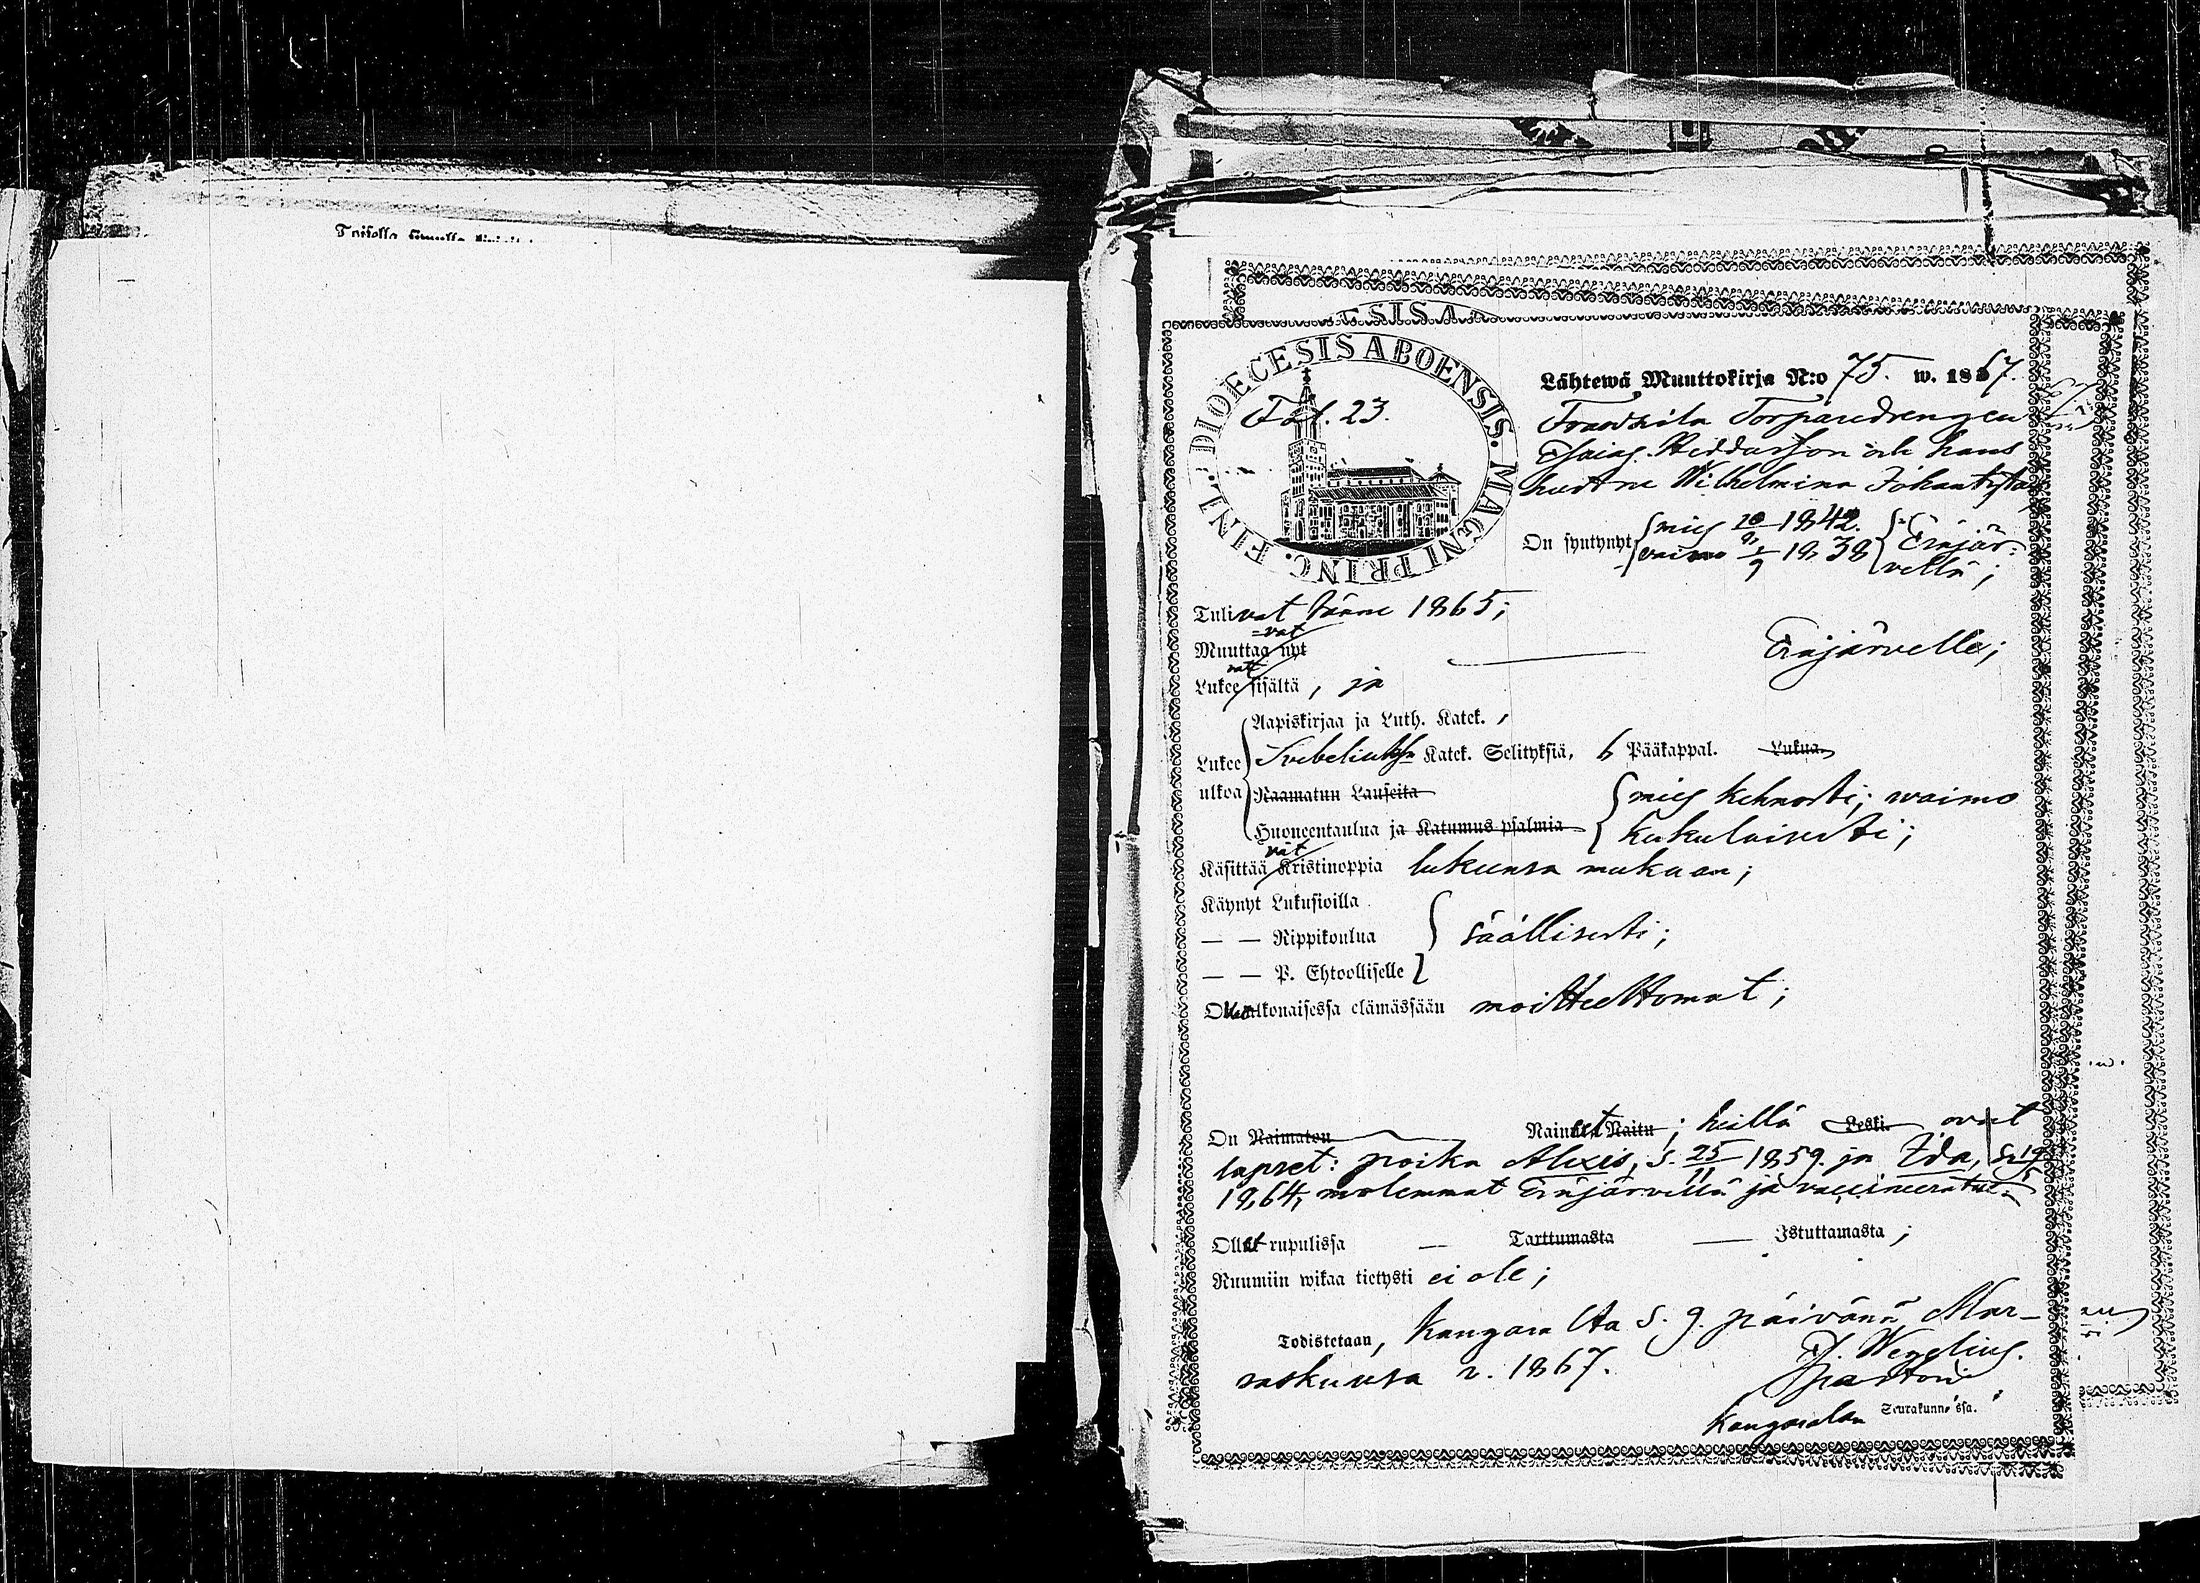 DIOECESIS ABOENSIS. MAGNI PRINC. FINL.
Fol. 23.
Lähtewä Muuttokirja N:o 75. w. 1867.
Torparedrengen
Esaias Heddarsson och hans
hustru Wilhelmina Johantytär
On syntynyt mies 10/8 1842. Eräjär-
vaimo 1/9 1838 vellä;
Tulivat tänne 1865;
Muuttaavat nyt Eräjärvelle;
Lukeevat sisältä, ja
Aapiskirjaa ja Luth. Katek.,
Lukee Svebeliuksen Katek. Selityksiä, 6 Pääkappal. Lukua
ulkoa Raamatun Lauseita mies kehnosti; waimo
Huoneentaulua ja Katumus psalmia kukulaisesti;
Käsittäävät Kristinoppia lukunsa mukaan;
Käynyt Lukusioilla
— — Rippikoulua säällisesti;
— — P. Ehtoolliselle
Ovat ulkonaisessa elämässään moitteettomat;
On Naimaton Nainut Naitu; heillä Leski ovat
lapset: poika Alexis, s. 25/11 1859. ja Ida, s. 19/5
1864, molemmat Eräjärvellä ja vaccineeratut.
Olleet rupulissa — Tarttumasta — Istuttamasta;
Ruumiin wikaa tietysti ei ole;
Todistetaan, Kangasalta s. 9. päivänä Mar-
raskuusa v. 1867. Wegelius.
pastori
Kangasalan Seurakunnassa.